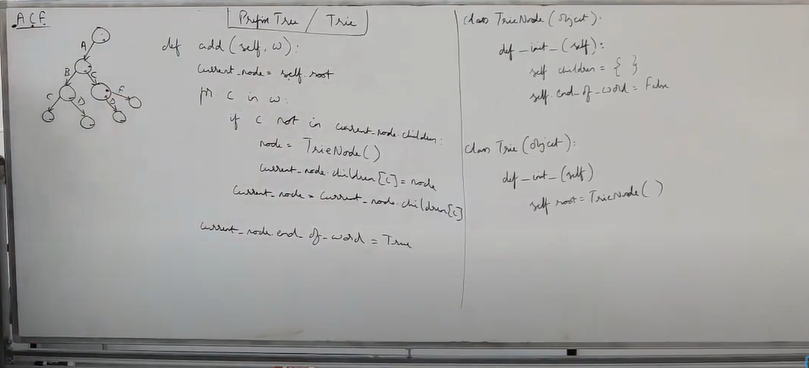 A C F
Prefix Tree / Trie
A
B C F
C D D
def add (self, w):
current_node = self.root
for c in w:
if c not in current_node.children:
node = TrieNode()
current_node.children[c] = node
current_node = current_node.children[c]
current_node.end_of_word = True
class TrieNode (object):
def _init_ (self):
self children = { }
self end_of_word = False
class Trie (object):
def _init_ (self)
self root = TrieNode ( )